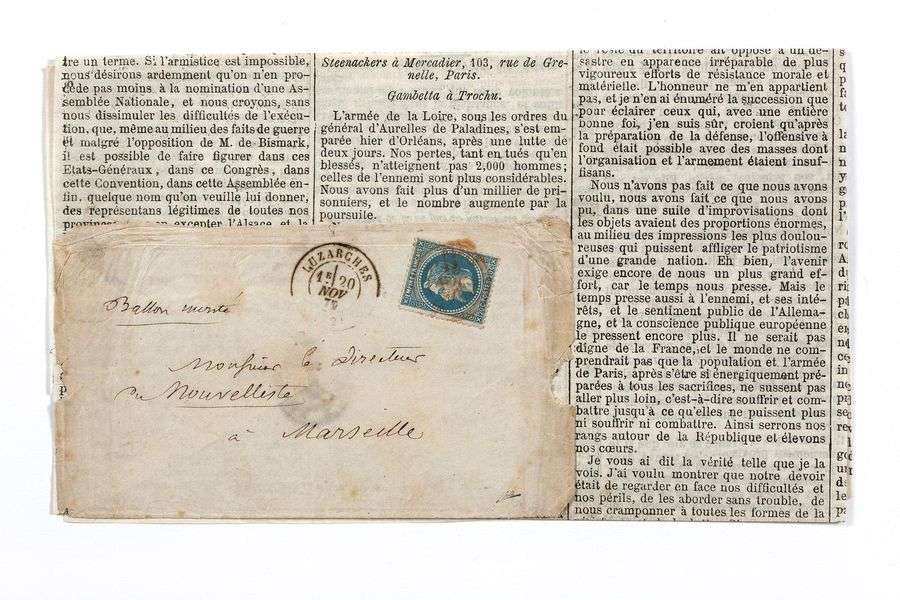 tre un terme. Si l'armistice est impossible,
nous désirons ardemment qu'on n'en pro-
cède pas moins à la nomination d'une As-
semblée Nationale, et nous croyons, sans
nous dissimuler les difficultés de l'exécu-
tion, que, même au milieu des faits de guerre
et malgré l'opposition de M. de Bismark,
il est possible de faire figurer dans ces
Etats-Généraux, dans ce Congrès, dans
cette Convention, dans cette Assemblée en-
fin, quelque nom qu'on veuille lui donner,
des représentans légitimes de toutes nos
excepter l'Alsace et la
Steenackers à Mercadier, 103, rue de Gre-
nelle, Paris.
Gambetta à Trochu.
L'armée de la Loire, sous les ordres du
général d'Aurelles de Paladines, s'est em-
parée hier d'Orléans, après une lutte de
deux jours. Nos pertes, tant en tués qu'en
blessés, n'atteignent pas 2,000 hommes;
celles de l'ennemi sont plus considérables.
Nous avons fait plus d'un millier de pri-
sonniers, et le nombre augmente par la
poursuite.
le reste du territoire ait opposé à un dé-
sastre en apparence irréparable de plus
vigoureux efforts de résistance morale et
matérielle. L'honneur ne m'en appartient
pas, et je n'en ai énuméré la succession que
pour éclairer ceux qui, avec une entière
bonne foi, j'en suis sûr, croient qu'après
la préparation de la défense, l'offensive à
fond était possible avec des masses dont
l'organisation et l'armement étaient insuf-
fisans.
Nous n'avons pas fait ce que nous avons
voulu, nous avons fait ce que nous avons
pu, dans une suite d'improvisations dont
les objets avaient des proportions énormes,
au milieu des impressions les plus doulou-
reuses qui puissent affliger le patriotisme
d'une grande nation. Eh bien, l'avenir
exige encore de nous un plus grand ef-
fort, car le temps nous presse. Mais le
temps presse aussi à l'ennemi, et ses inté-
rêts, et le sentiment public de l'Allema-
gne, et la conscience publique européenne
le pressent encore plus. Il ne serait pas
digne de la France, et le monde ne com-
prendrait pas que la population et l'armée
de Paris, après s'être si énergiquement pré-
parées à tous les sacrifices, ne sussent pas
aller plus loin, c'est-à-dire souffrir et com-
battre jusqu'à ce qu'elles ne puissent plus
ni souffrir ni combattre. Ainsi serrons nos
rangs autour de la République et élevons
nos cœurs.
Je vous ai dit la vérité telle que je la
vois. J'ai voulu montrer que notre devoir
était de regarder en face nos difficultés et
nos périls, de les aborder sans trouble, de
nous cramponner à toutes les formes de la
LUZARCHES
20
NOV
Ballon monté
Monsieur le Directeur
du Nouvelliste
à Marseille